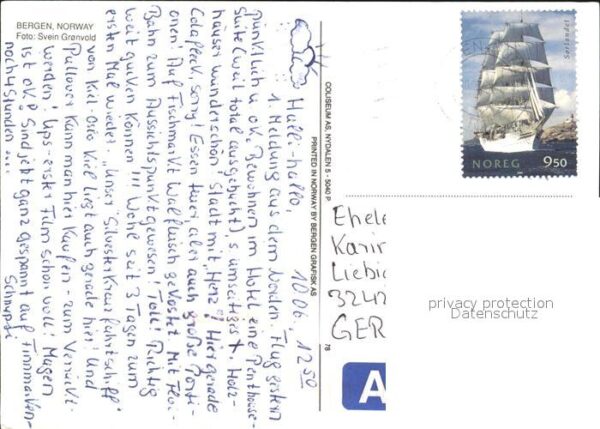 BERGEN, NORWAY
Foto: Svein Grønvold
10 06, 12 50
Halli-hallo,
1. Meldung aus dem Norden. Flug gestern
pünktlich u. ok. Bewohnen im Hotel eine Penthouse-
suite (weil total ausgebucht), s. umseitiges x. Holz-
häuser wunderschön! Stadt mit "Herz"! Hier gerade
Colafleck, sorry! Essen teuer aber auch große Porti-
onen! Auf Fischmarkt Walfleisch gekostet. Mit Floi-
Bahn zum Aussichtspunkt gewesen! Toll! Richtig
weit gucken können!!! Wohl seit 3 Tagen zum
ersten Mal wieder. "Unser" Silvesterkreuzfahrtschiff
von Kiel-Oslo-Kiel liegt auch gerade hier! Und
Pullover kann man hier kaufen - zum Verrückt-
werden! Ups - erster Film schon voll! Magen
ist ok! Sind jetzt ganz gespannt auf Finnmarken-
noch 4 Stunden ...
Schnupsi
COLISEUM AS, NYDALEN 5 - 5040 P
PRINTED IN NORWAY BY BERGEN GRAFISK AS
78
Sørlandet
NOREG 9 50
Ehele
Karin
Liebi
3242
GER
privacy protection
Datenschutz
A